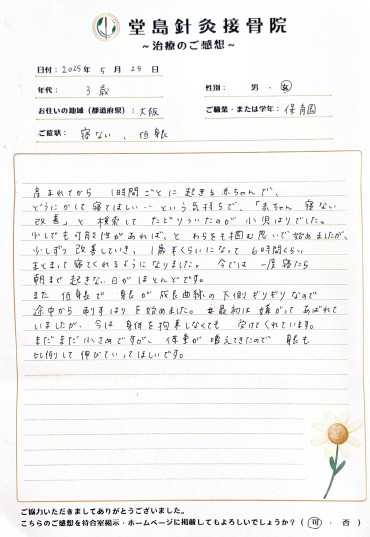 堂島針灸接骨院
~治療のご感想~
日付：2025年 5月 25日
年代： 3歳
性別： 男・女
お住いの地域（都道府県）：大阪
ご職業・または学年：保育園
ご症状： 寝ない、低身長
産まれてから 1時間ごとに起きる赤ちゃんで、
どうにかして寝てほしい… という気持ちで、「赤ちゃん 寝ない
改善」と 検索して たどりついたのが 小児はりでした。
少しでも可能性があれば、と わらをも掴む思いで始めましたが、
少しずつ 改善していき、1歳半くらいになって 6時間くらい
まとまって寝てくれるようになりました。 今では 一度寝たら
朝まで起きない日がほとんどです。
また 低身長で 身長が 成長曲線の下側ギリギリなので
途中から 刺すはりを始めました。 最初は嫌がってあばれて
いましたが、今は 身体を拘束しなくても 受けてくれています。
まだまだ小さめですが、体重が増えてきたので 身長も
比例して伸びていってほしいです。
ご協力いただきましてありがとうございました。
こちらのご感想を待合室掲示・ホームページに掲載してもよろしいでしょうか？（ 可 ・ 否 ）